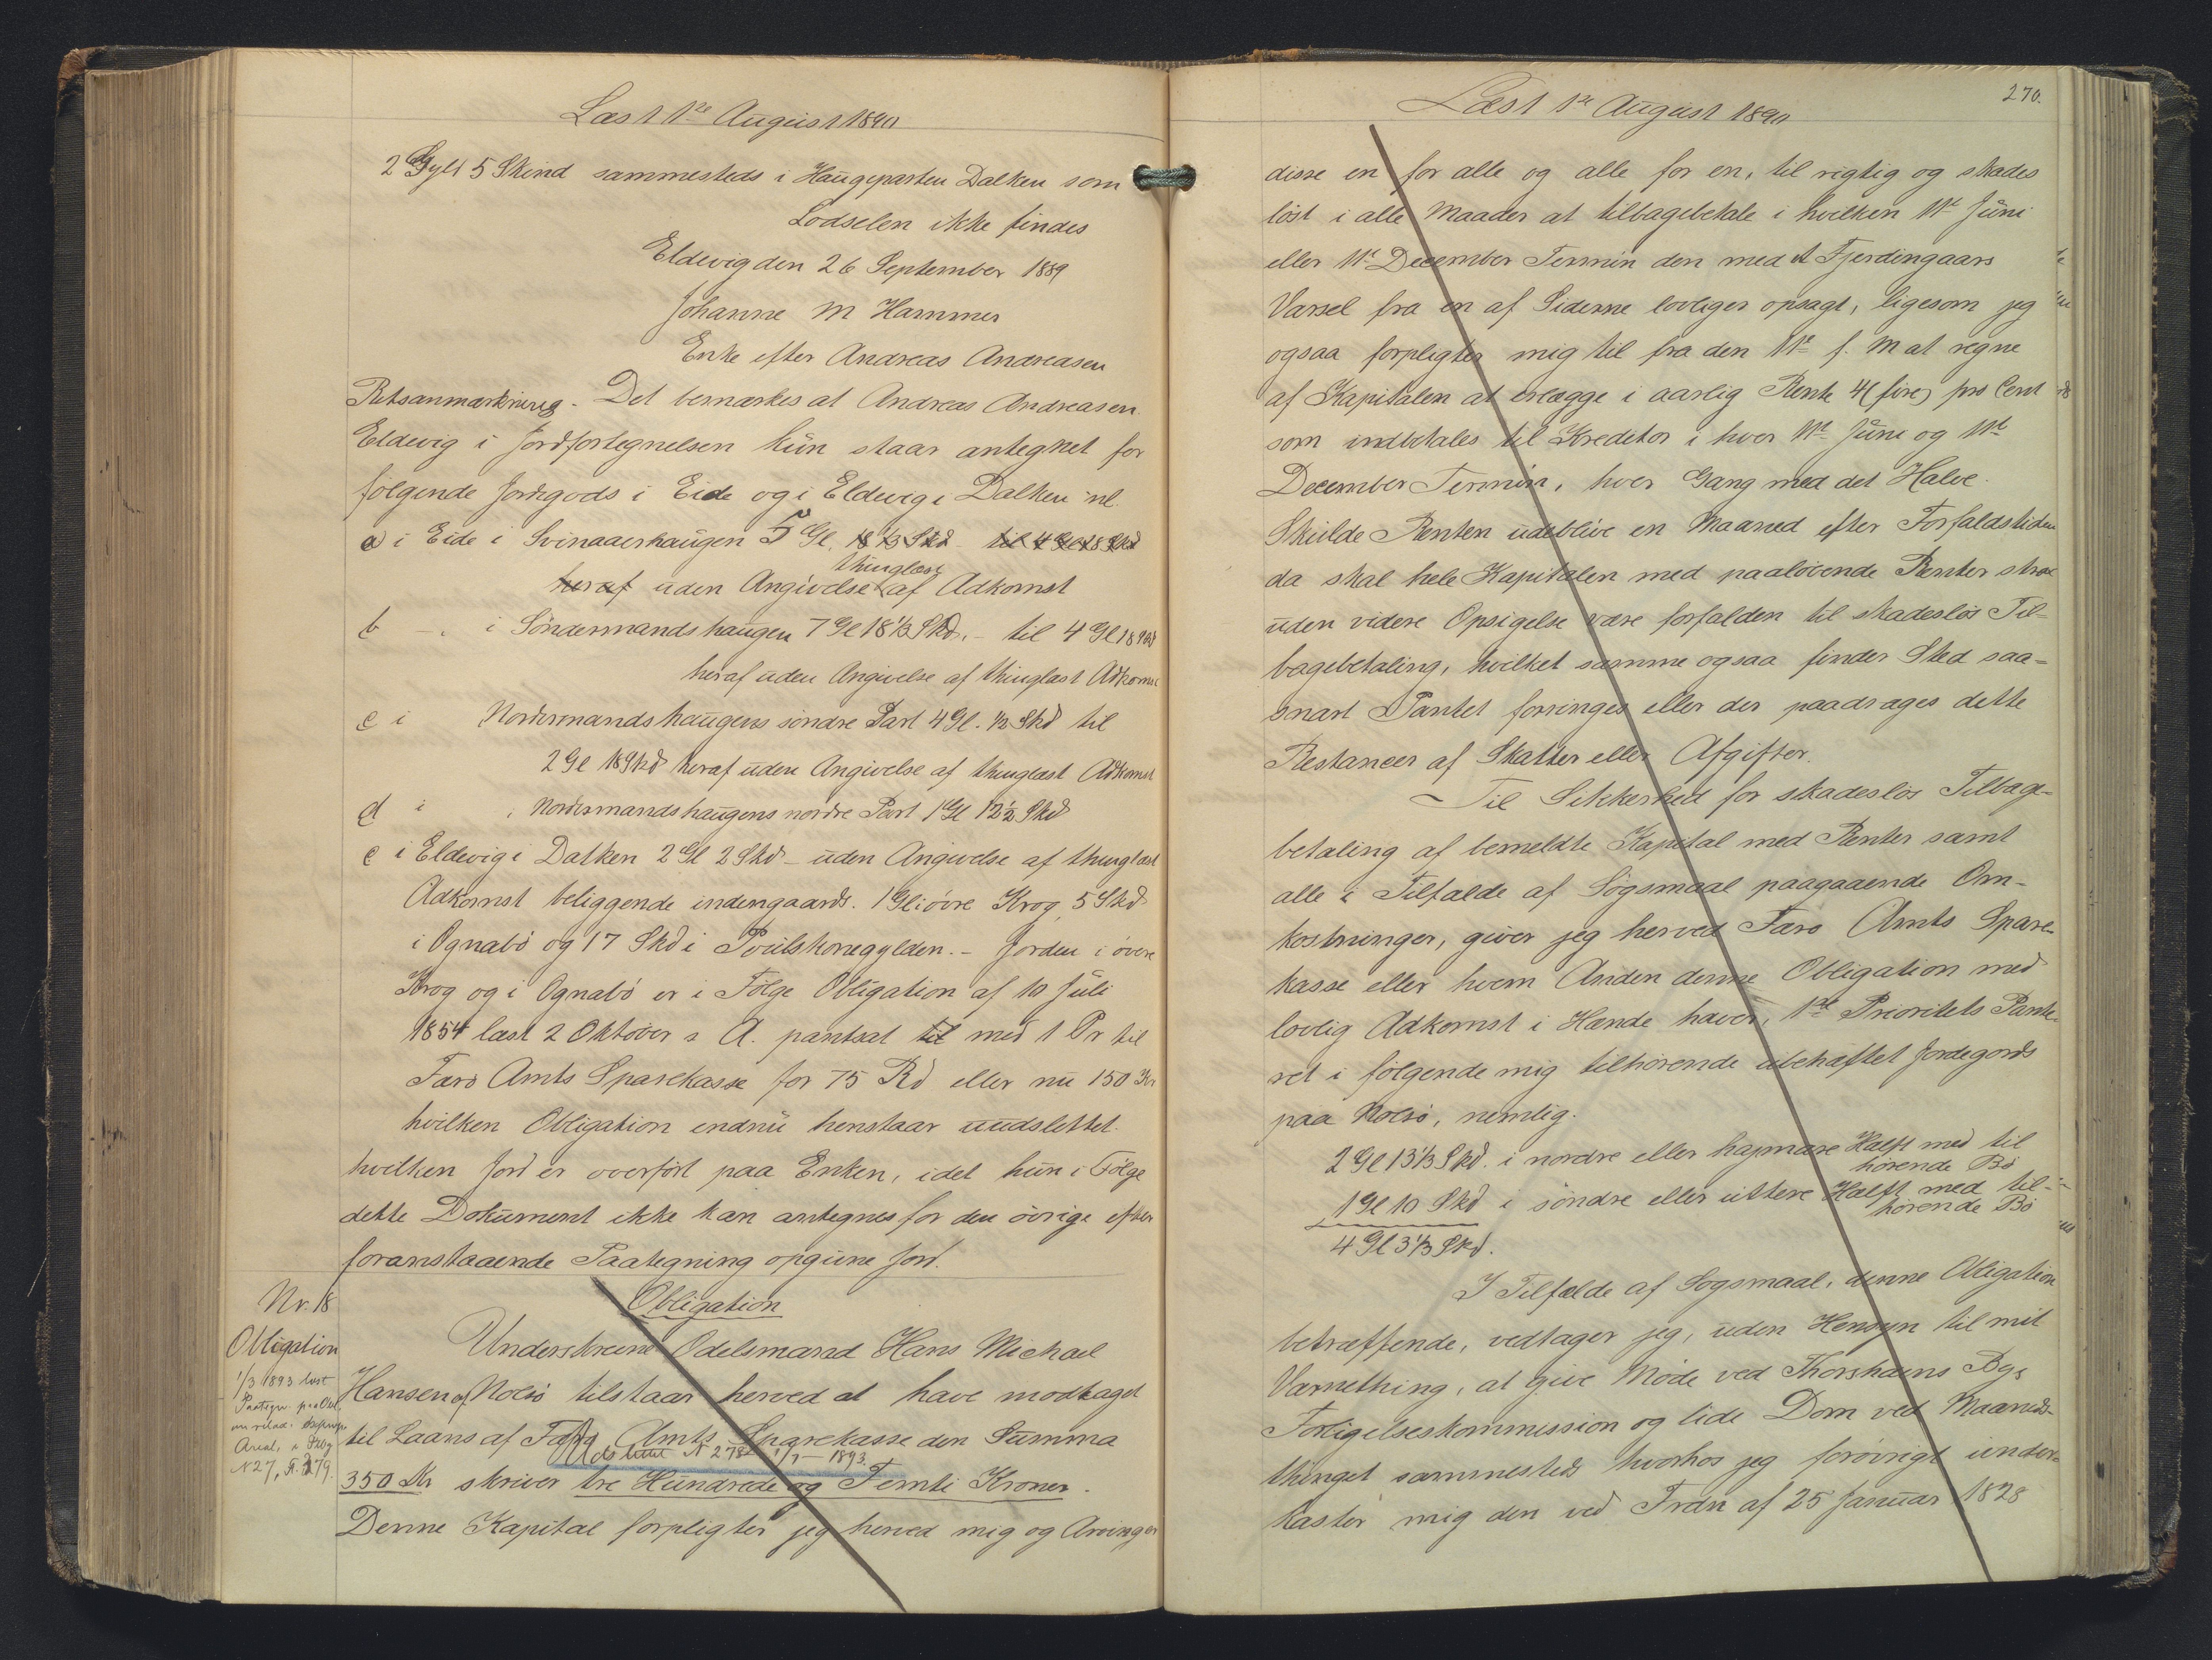 Læst 1ste August 1890
2 Gyld 5 Skind sammesteds i Haugeparten Dalken som
Lodselen ikke findes
Eldevig den 26 September 1889
Johanne M Hammer
Enke efter Andreas Andreasen
Retsanmærkning. Det bemærkes at Andreas Andreasen
Eldevig i Jordfortegnelsen kun staar antegnet for
følgende Jordegods i Eide og i Eldevig i Dalken nl.
a) i Eide i Svinaaerhaugen 5 Gl. 18 1/3 Skd - til 4 Gl 18 Skd
thinglæst
heraf uden Angivelse af Adkomst
b - . i Søndermandshaugen 7 Gl 18 1/3 Skd. - til 4 Gl 18 Skd
heraf uden Angivelse af thinglæst Adkomst
c i Nordermandshaugens søndre Part 4 Gl. 1/2 Skd til
2 Gl 18 Skd heraf uden Angivelse af thinglæst Adkomst
d i , Nordermandshaugens nordre Part 1 Gl 12 1/2 Skd
e i Eldevig i Dalken 2 Gl 2 Skd - uden Angivelse af thinglæst
Adkomst beliggende indengaards. 1 Gl i øvre Krog, 5 Skd
i Ognabø og 17 Skd i Poulskonegylden. - Jorden i øvre
Krog og i Ognabø er i Følge Obligation af 10 Juli
1854 læst 2 Oktober s A. pantsat til med 1 Pr til
Færø Amts Sparekasse for 75 Rd eller nu 150 Kr
hvilken Obligation endnu henstaar uudslettet.
hvilken Jord er overført paa Enken, idet hun i Følge
dette Dokument ikke kan antegnes for den øvrige efter
foranstaaende Paategning opgivne Jord.
Nr. 18
Obligation
Obligation
Underskrevne Odelsmand Hans Michael
1/3 1893 læst
Hansen af Nolsø tilstaar herved at have modtaget
til Laans af Færø Amts Sparekasse den Summa
Areal,
N 27, F. 279.
Udslettet N 278 1/7 - 1893.
350 Kr skriver tre Hundrede og Femti Kroner.
Denne Kapital forpligter jeg herved mig og Arvinger
270.
Læst 1ste August 1890
disse en for alle og alle for en, til rigtig og skades
løst i alle Maader at tilbagebetale i hvilken 11te Juni
eller 11te December Termin den med et Fjerdingaars
Varsel fra en af Siderne lovliger opsagt, ligesom jeg
ogsaa forpligter mig til fra den 11te f. M at regne
af Kapitalen at erlægge i aarlig Rente 4 (fire) pro Cent
som indbetales til Kreditor i hver 11te Juni og 11te
December Termin, hver Gang med det Halve.
Skulde Renten udeblive en Maaned efter Forfaldstiden
da skal hele Kapitalen med paaløbende Renter strax
uden videre Opsigelse være forfalden til skadesløs Til-
bagebetaling, hvilket samme ogsaa finder Sted saa-
snart Pantet forringes eller der paadrages dette
Restancer af Skatter eller Afgifter.
Til Sikkerhed for skadesløs Tilbage-
betaling af bemeldte Kapital med Renter samt
alle i Tilfælde af Søgsmaal paagaaende Om-
kostninger, giver jeg herved Færø Amts Spare-
kasse eller hvem Anden denne Obligation med
lovlig Adkomst i Hænde haver, 1ste Prioritets Pante-
ret i følgende mig tilhørende ubehæftet Jordegods
paa Nolsø, nemlig.
2 Gl 13 1/3 Skd. i nordre eller hajmare Halft med til
hørende Bø
1 Gl 10 Skd i søndre eller uttere Halft med til-
hørende Bø
4 Gl 3 1/3 Skd.
I Tilfælde af Søgsmaal, denne Obligation
betræffende, vedtager jeg, uden Hensyn til mit
Værnething, at give Møde ved Thorshavns Byes
Forligelseskommission og lide Dom ved Maaneds-
thinget sammesteds hvorhos jeg forøvrigt under-
kaster mig den ved Frdn af 25 Januar 1828